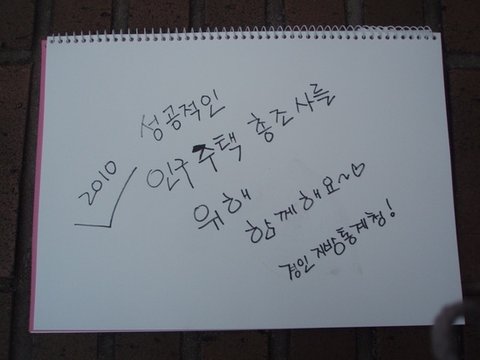 성공적인
2010 인구주택 총조사를
위해
함께해요~♡
경인지방통계청!